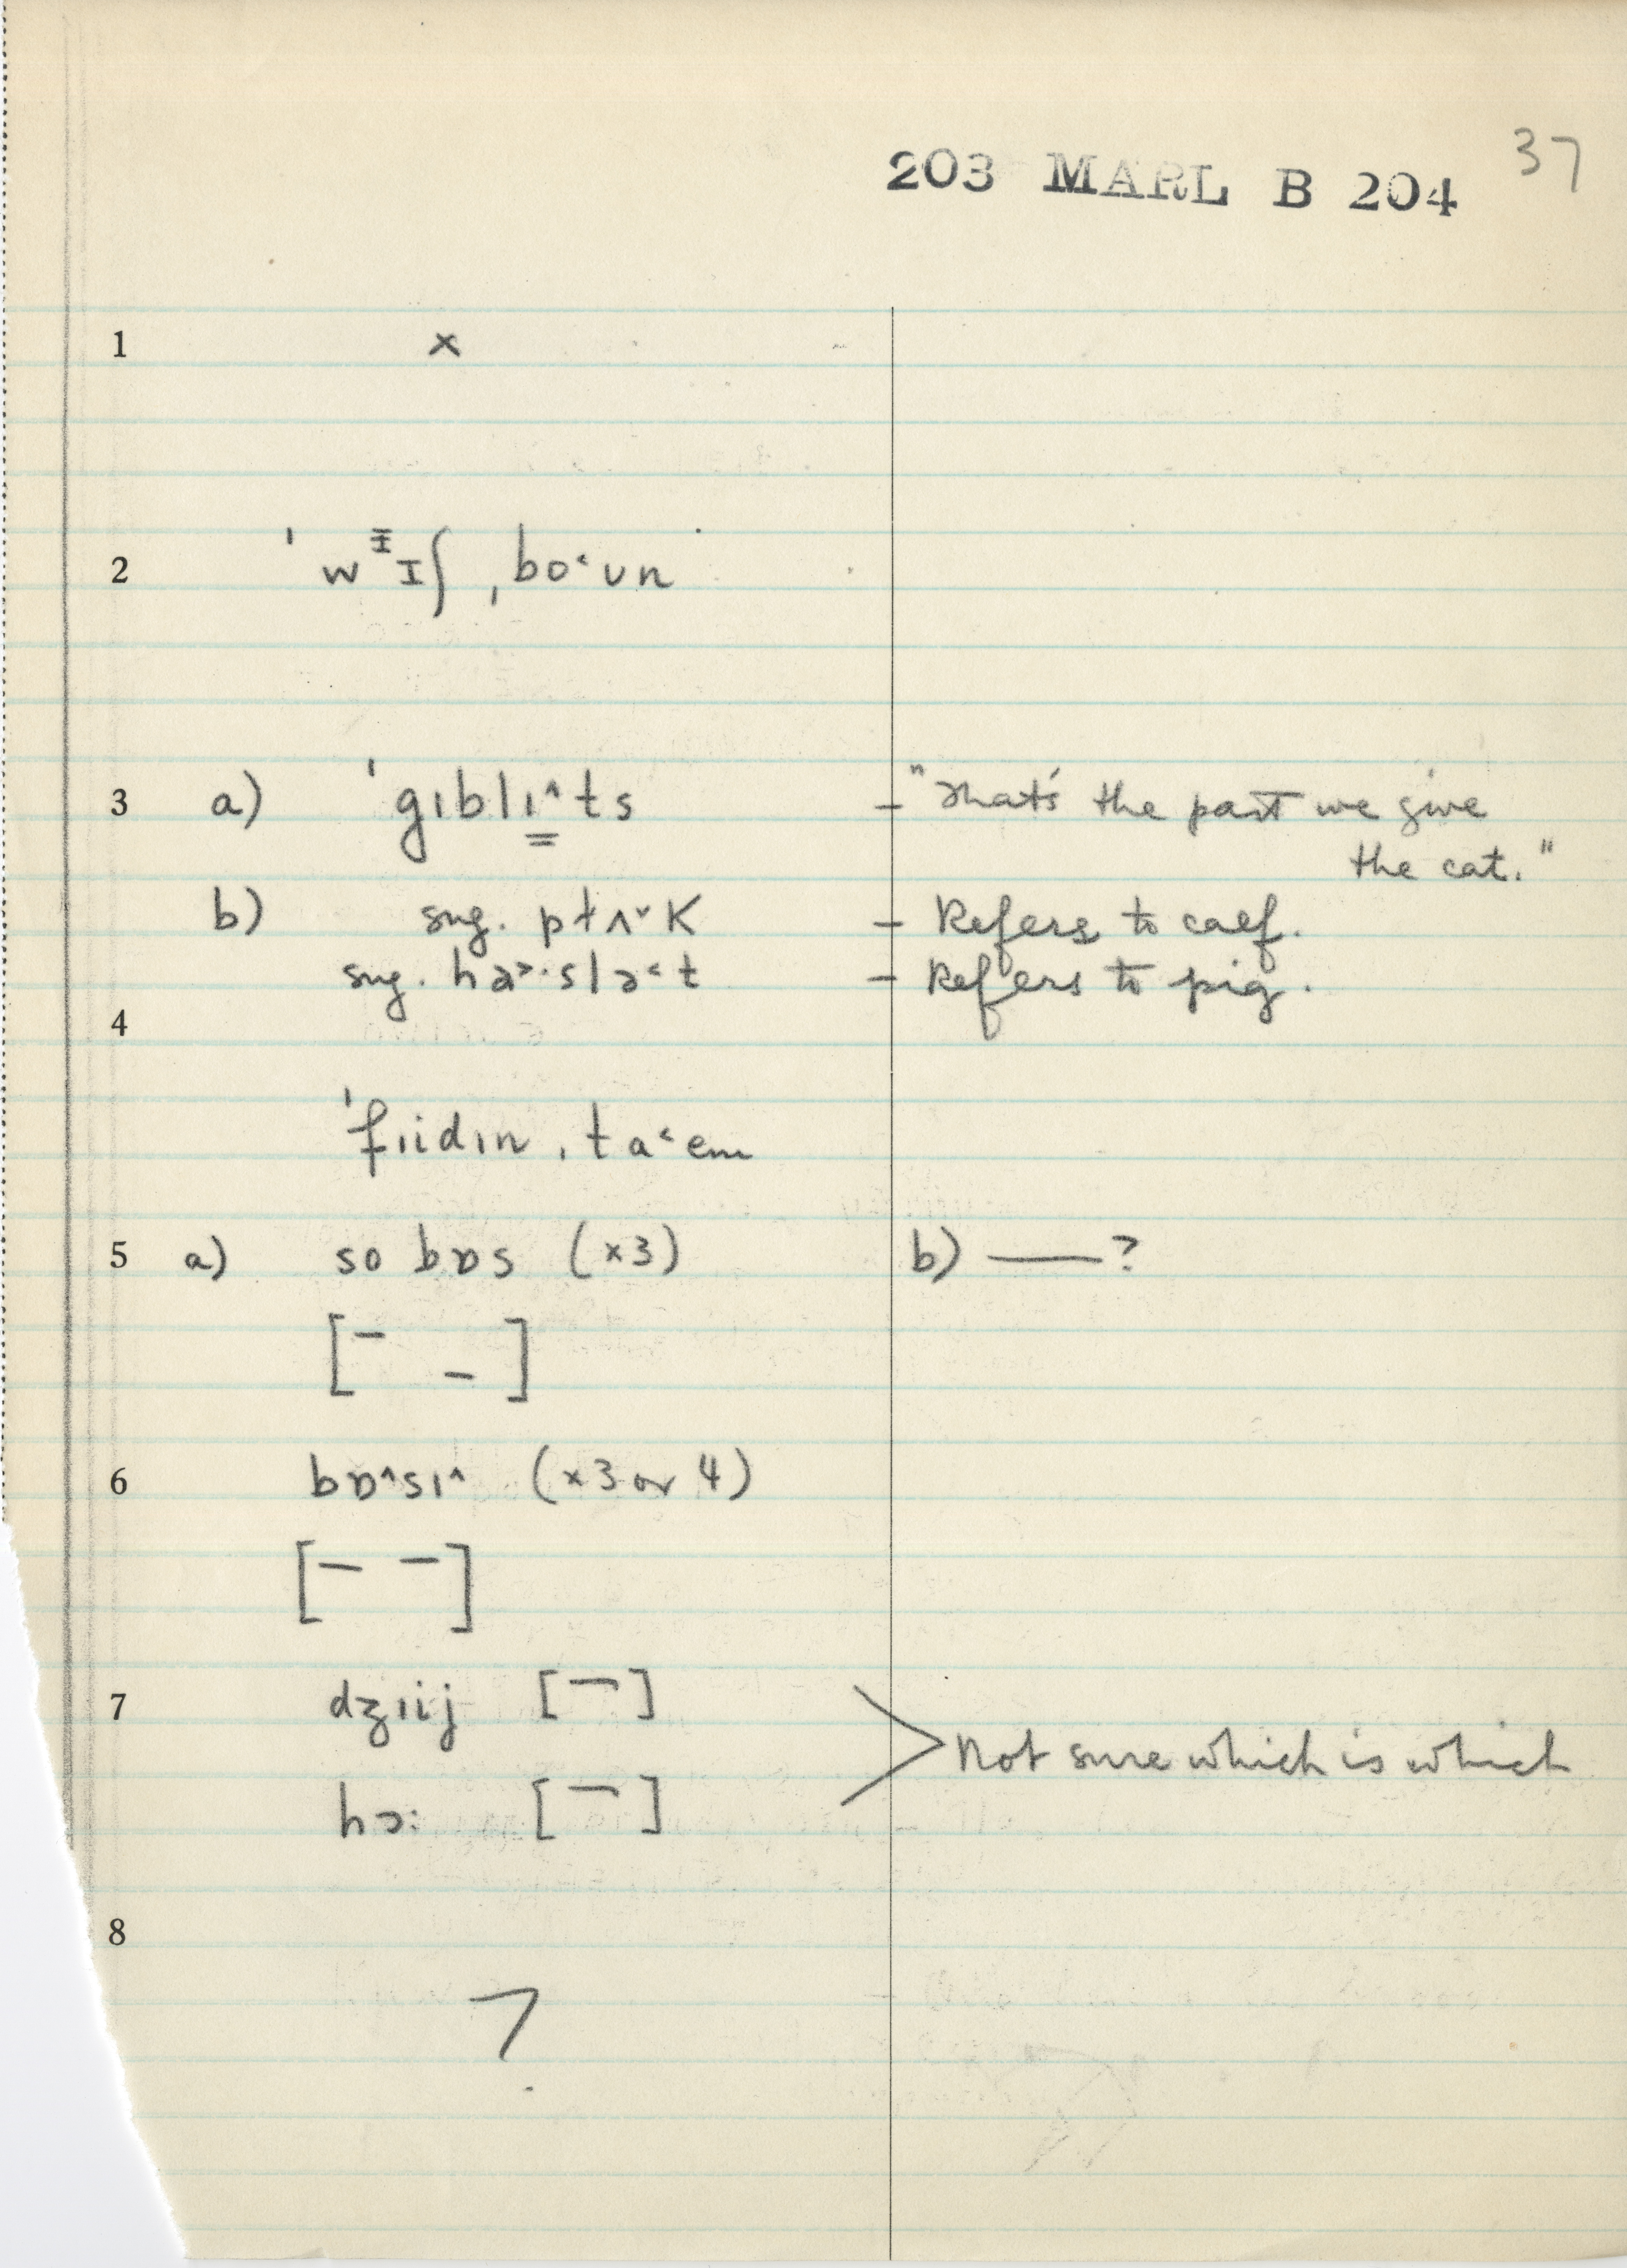 203 MARL B 204 37
1 x
2 ˈwᵻɪʃ ˌbo˂ʊn
3 a) ˈgɪblɪ^ts - "That's the part we give
the cat."
b) sug. pɫʌ˅k - Refers to calf.
sug. ha>·slə˂t - Refers to pig.
4
ˈfɪidɪn ˌta˂em
5 a) so bɒs (x3) b) ——?
[¯ _]
6 bɒ^sɪ^ (x3 or 4)
[– –]
7 dʒɪij [¯] > Not sure which is which
hɔ: [¯]
8
?